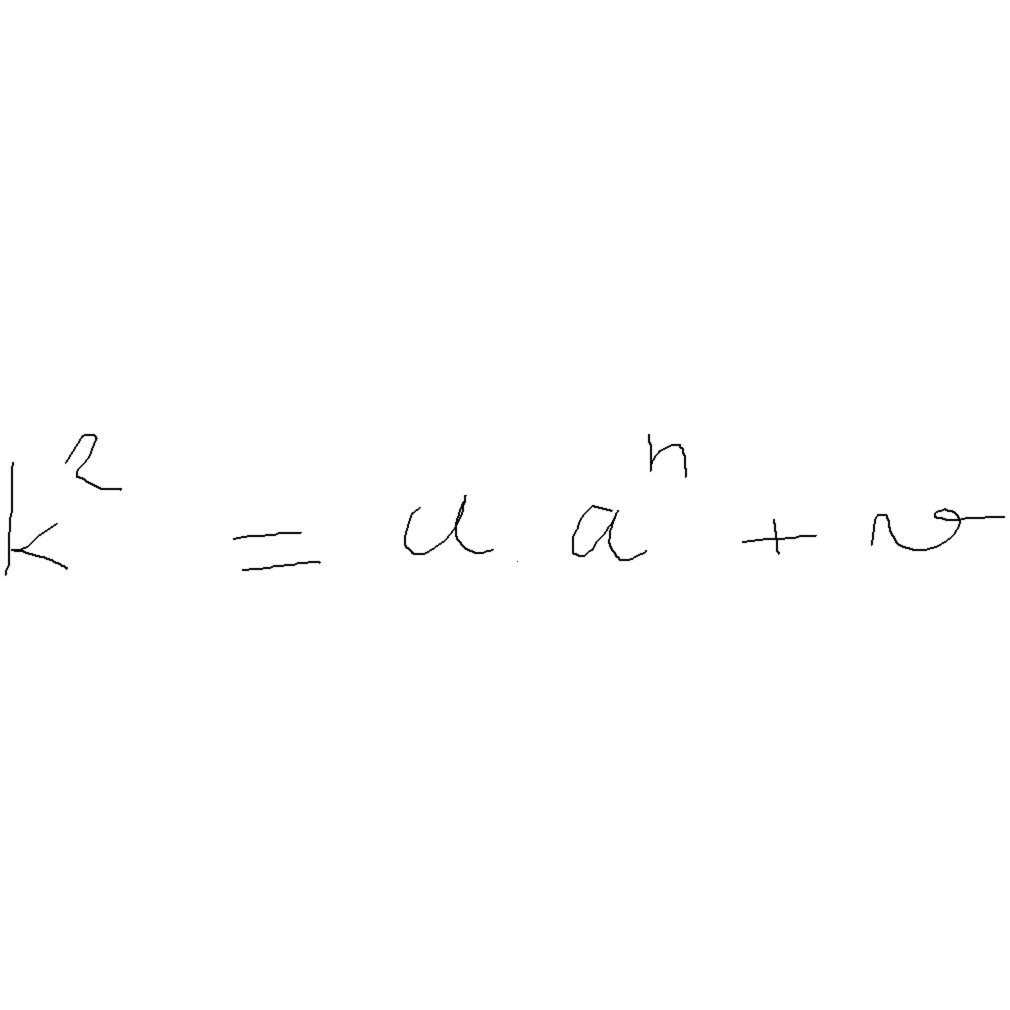 k² = u aⁿ + v